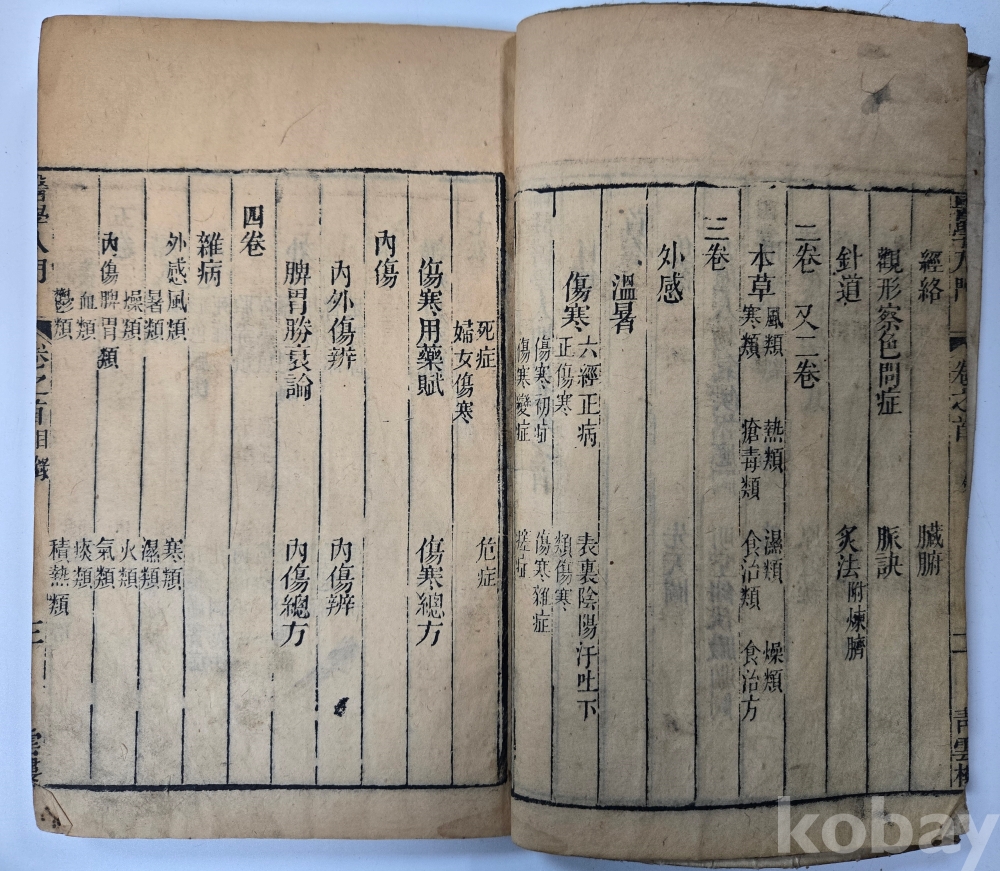 經絡 臟腑
觀形察色問症 脈訣
針道 灸法附煉臍
二卷 又二卷
本草 風類 熱類 濕類 燥類
寒類 瘡毒類 食治類 食治方
三卷
外感
溫暑
傷寒 六經正病 表裏陰陽汗吐下
正傷寒 類傷寒
傷寒初症 傷寒雜症
傷寒變症 瘥症
死症 危症
婦女傷寒
傷寒用藥賦 傷寒總方
內傷
內外傷辨 內傷辨
脾胃勝衰論 內傷總方
四卷
雜病
外感風類 寒類
暑類 濕類
燥類 火類
內傷脾胃類 氣類
血類 痰類
鬱類 積熱類
醫學入門 卷之首目 三
kobay